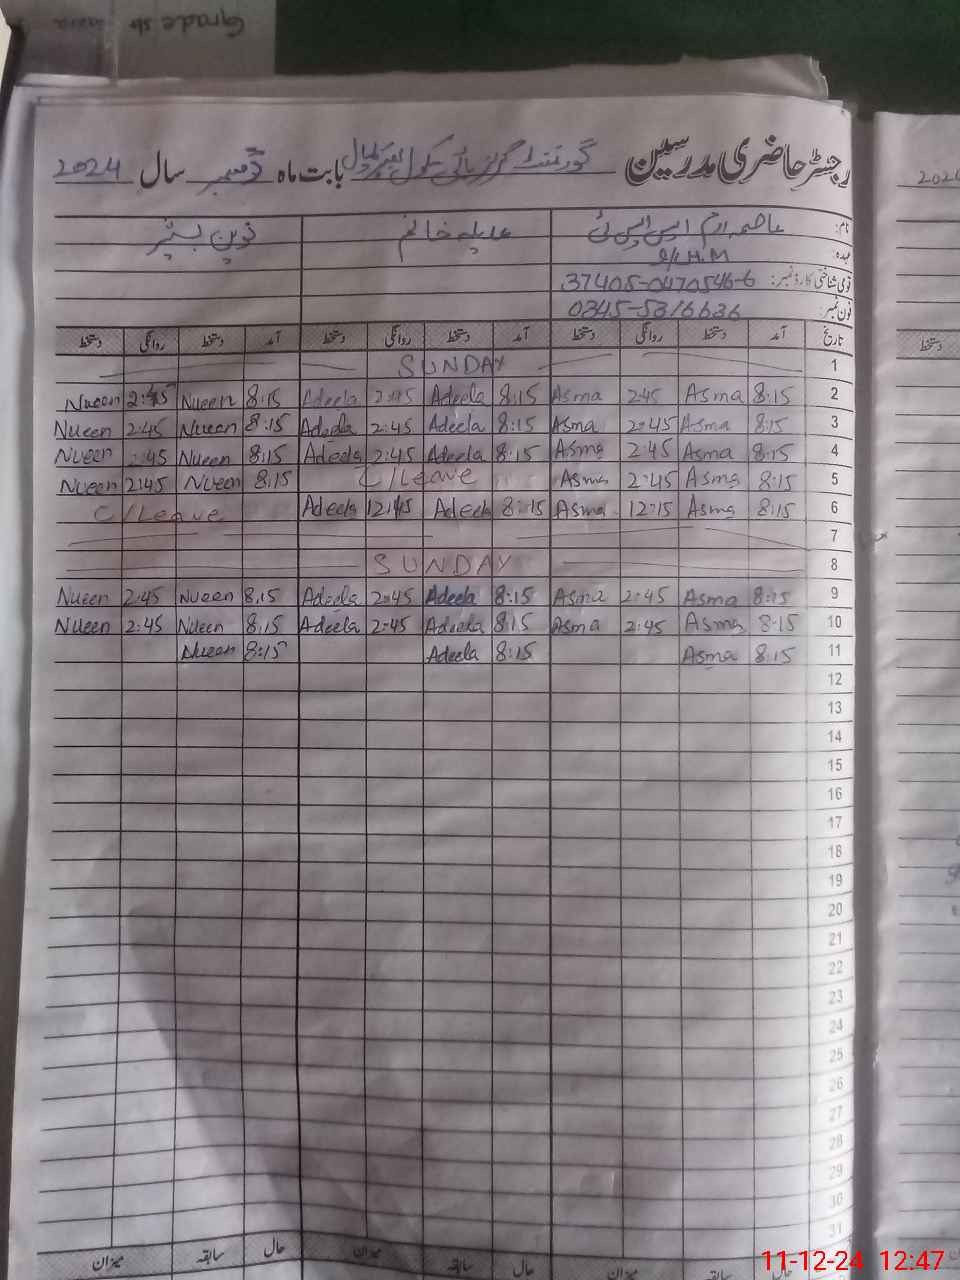 رجسٹر حاضری مدرسین گورنمنٹ گرلز ہائی سکول بابت ماہ دسمبر سال 2024
نام: عاصمہ ارم ایس ایس ٹی عدیلہ خانم نوین بشیر
عہدہ: I/C H.M
قومی شناختی کارڈ نمبر: 37405-0470546-6
فون نمبر: 0345-5316636
تاریخ آمد دستخط روانگی دستخط آمد دستخط روانگی دستخط آمد دستخط روانگی دستخط
1 SUNDAY
2 8:15 Asma 2:45 Asma 8:15 Adeela 2:45 Adeela 8:15 Nueen 2:45 Nueen
3 8:15 Asma 2:45 Asma 8:15 Adeela 2:45 Adeela 8:15 Nueen 2:45 Nueen
4 8:15 Asma 2:45 Asma 8:15 Adeela 2:45 Adeela 8:15 Nueen 2:45 Nueen
5 8:15 Asma 2:45 Asma C/Leave 8:15 Nueen 2:45 Nueen
6 8:15 Asma 12:15 Asma 8:15 Adeela 12:15 Adeela C/Leave
7
8 SUNDAY
9 8:15 Asma 2:45 Asma 8:15 Adeela 2:45 Adeela 8:15 Nueen 2:45 Nueen
10 8:15 Asma 2:45 Asma 8:15 Adeela 2:45 Adeela 8:15 Nueen 2:45 Nueen
11 8:15 Asma 8:15 Adeela 8:15 Nueen
12
13
14
15
16
17
18
19
20
21
22
23
24
25
26
27
28
29
30
31
حال سابقہ میزان حال سابقہ میزان حال سابقہ میزان
11-12-24 12:47